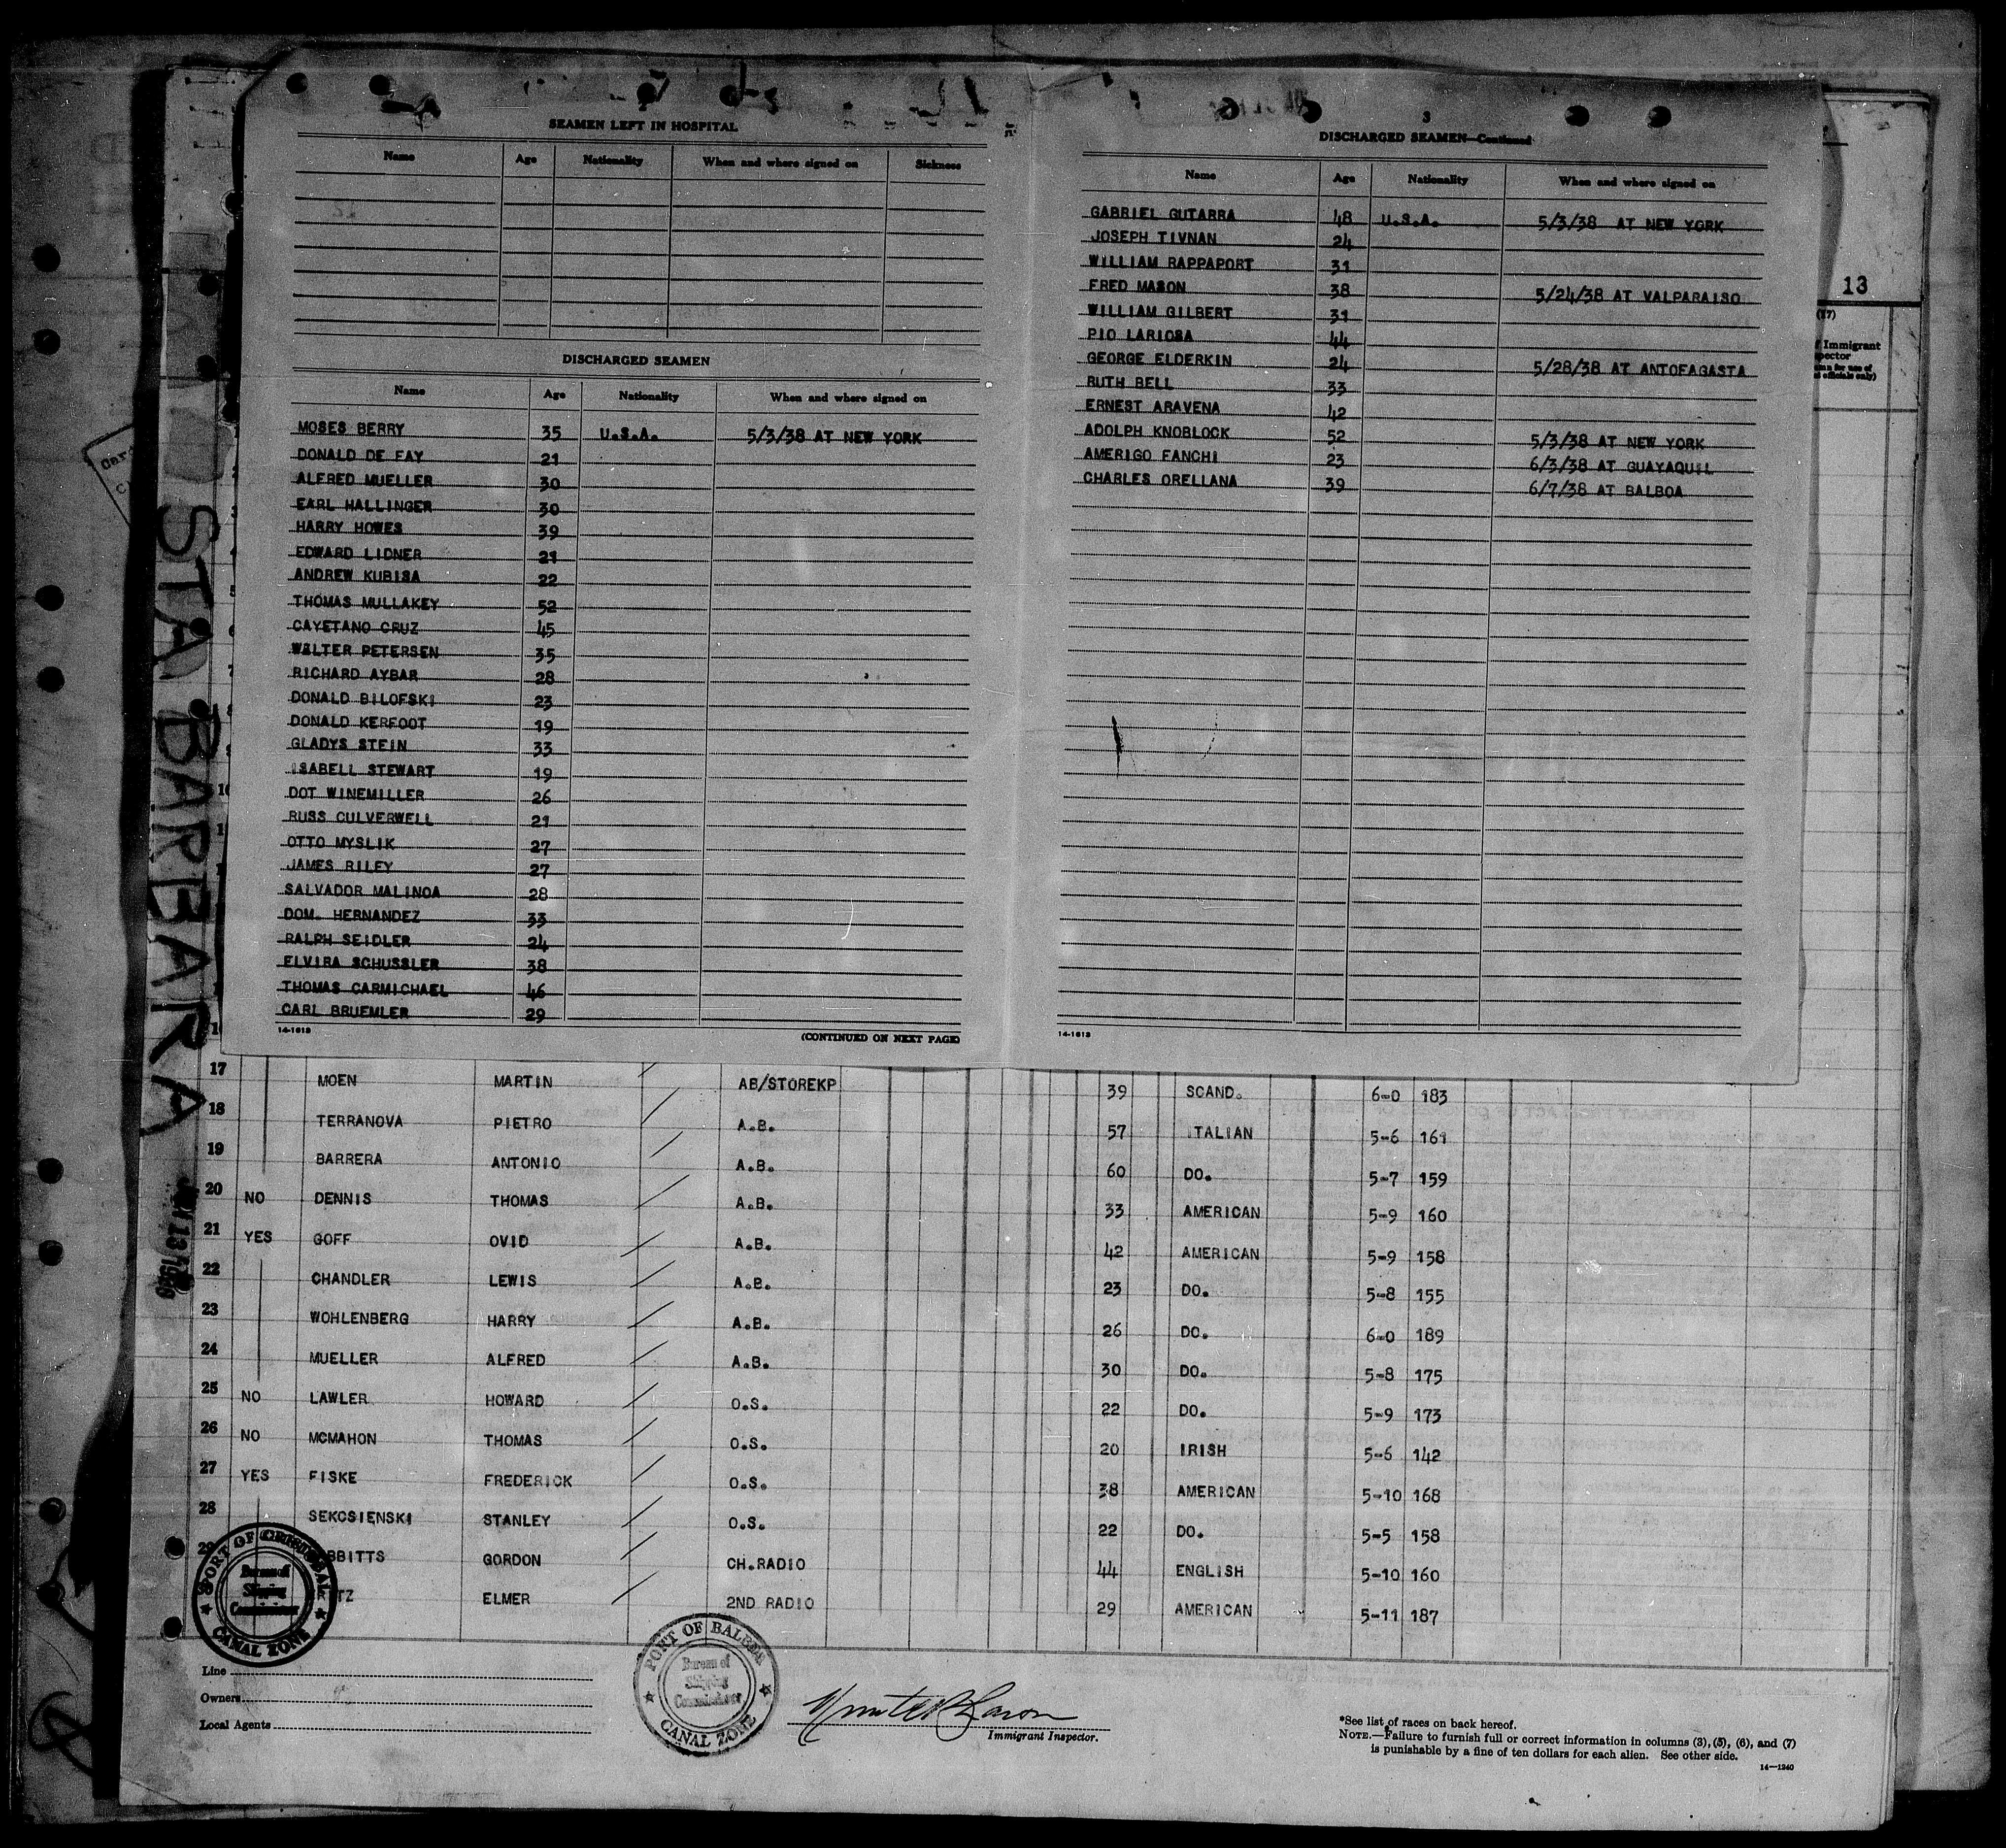 SEAMEN LEFT IN HOSPITAL
Name Age Nationality When and where signed on Sickness
DISCHARGED SEAMEN
Name Age Nationality When and where signed on
MOSES BERRY 35 U.S.A. 5/3/38 AT NEW YORK
DONALD DE FAY 21
ALFRED MUELLER 30
EARL HALLINGER 30
HARRY HOWES 39
EDWARD LIDNER 21
ANDREW KUBISA 22
THOMAS MULLAKEY 52
CAYETANO CRUZ 45
WALTER PETERSEN 35
RICHARD AYBAR 28
DONALD BILOFSKI 23
DONALD KERFOOT 19
GLADYS STEIN 33
ISABELL STEWART 19
DOT WINEMILLER 26
RUSS CULVERWELL 21
OTTO MYSLIK 27
JAMES RILEY 27
SALVADOR MALINOA 28
DOM. HERNANDEZ 33
RALPH SEIDLER 24
ELVIRA SCHUSSLER 38
THOMAS CARMICHAEL 46
CARL BRUEMLER 29
14-1613 (CONTINUED ON NEXT PAGE)
3
DISCHARGED SEAMEN—Continued
Name Age Nationality When and where signed on
GABRIEL GUTARRA 48 U.S.A. 5/3/38 AT NEW YORK
JOSEPH TIVNAN 24
WILLIAM RAPPAPORT 31
FRED MASON 38 5/24/38 AT VALPARAISO
WILLIAM GILBERT 31
PIO LARIOSA 44
GEORGE ELDERKIN 24 5/28/38 AT ANTOFAGASTA
RUTH BELL 33
ERNEST ARAVENA 42
ADOLPH KNOBLOCK 52 5/3/38 AT NEW YORK
AMERIGO FANCHI 23 6/3/38 AT GUAYAQUIL
CHARLES ORELLANA 39 6/7/38 AT BALBOA
14-1613
13
(17)
Immigrant
STA BARBARA
17 MOEN MARTIN / AB/STOREKP 39 SCAND. 6-0 183
18 TERRANOVA PIETRO / A.B. 57 ITALIAN 5-6 161
19 BARRERA ANTONIO / A.B. 60 DO. 5-7 159
20 NO DENNIS THOMAS / A.B. 33 AMERICAN 5-9 160
21 YES GOFF OVID / A.B. 42 AMERICAN 5-9 158
22 CHANDLER LEWIS / A.B. 23 DO. 5-8 155
23 WOHLENBERG HARRY / A.B. 26 DO. 6-0 189
24 MUELLER ALFRED / A.B. 30 DO. 5-8 175
25 NO LAWLER HOWARD / O.S. 22 DO. 5-9 173
26 NO MCMAHON THOMAS / O.S. 20 IRISH 5-6 142
27 YES FISKE FREDERICK / O.S. 38 AMERICAN 5-10 168
28 SEKOSIENSKI STANLEY / O.S. 22 DO. 5-5 158
BBITTS GORDON / CH.RADIO 44 ENGLISH 5-10 160
TZ ELMER / 2ND RADIO 29 AMERICAN 5-11 187
PORT OF CRISTOBAL
Bureau of
Shipping
Commissioner
CANAL ZONE
PORT OF BALBOA
Bureau of
Shipping
Commissioner
CANAL ZONE
Line
Owners
Local Agents
Immigrant Inspector.
*See list of races on back hereof.
NOTE.—Failure to furnish full or correct information in columns (3), (5), (6), and (7)
is punishable by a fine of ten dollars for each alien. See other side.
14—1240